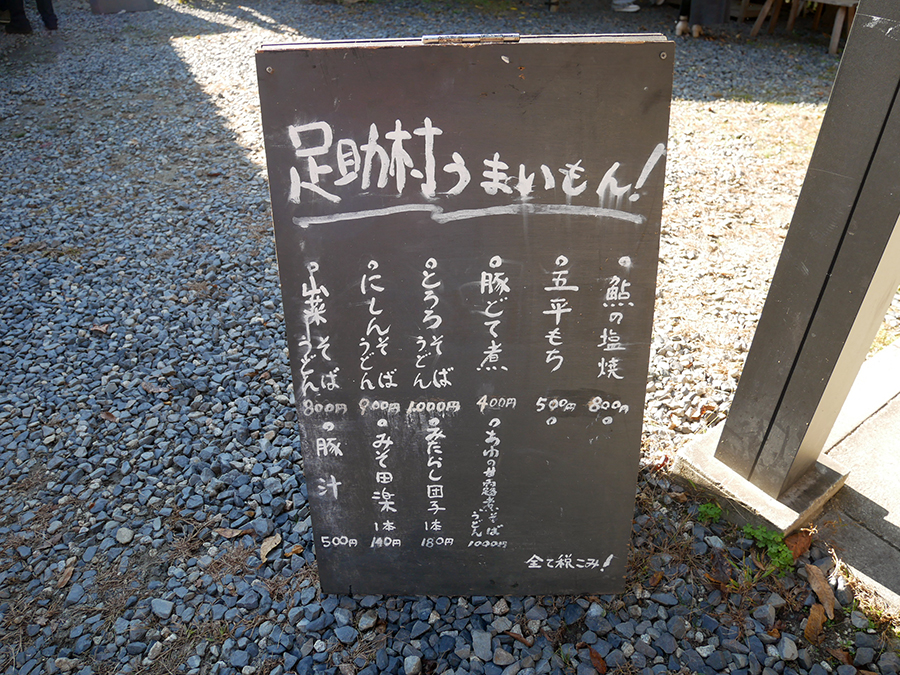 足助村うまいもん!
○鮎の塩焼 800円
○五平もち 500円
○豚どて煮 400円
○とろろそばうどん 1000円
○にしんそばうどん 900円
○山菜そばうどん 800円
○
○
○あゆの甘露煮そばうどん 1000円
○みたらし団子 1本 180円
○みそ田楽 1本 140円
○豚汁 500円
全て税こみ!